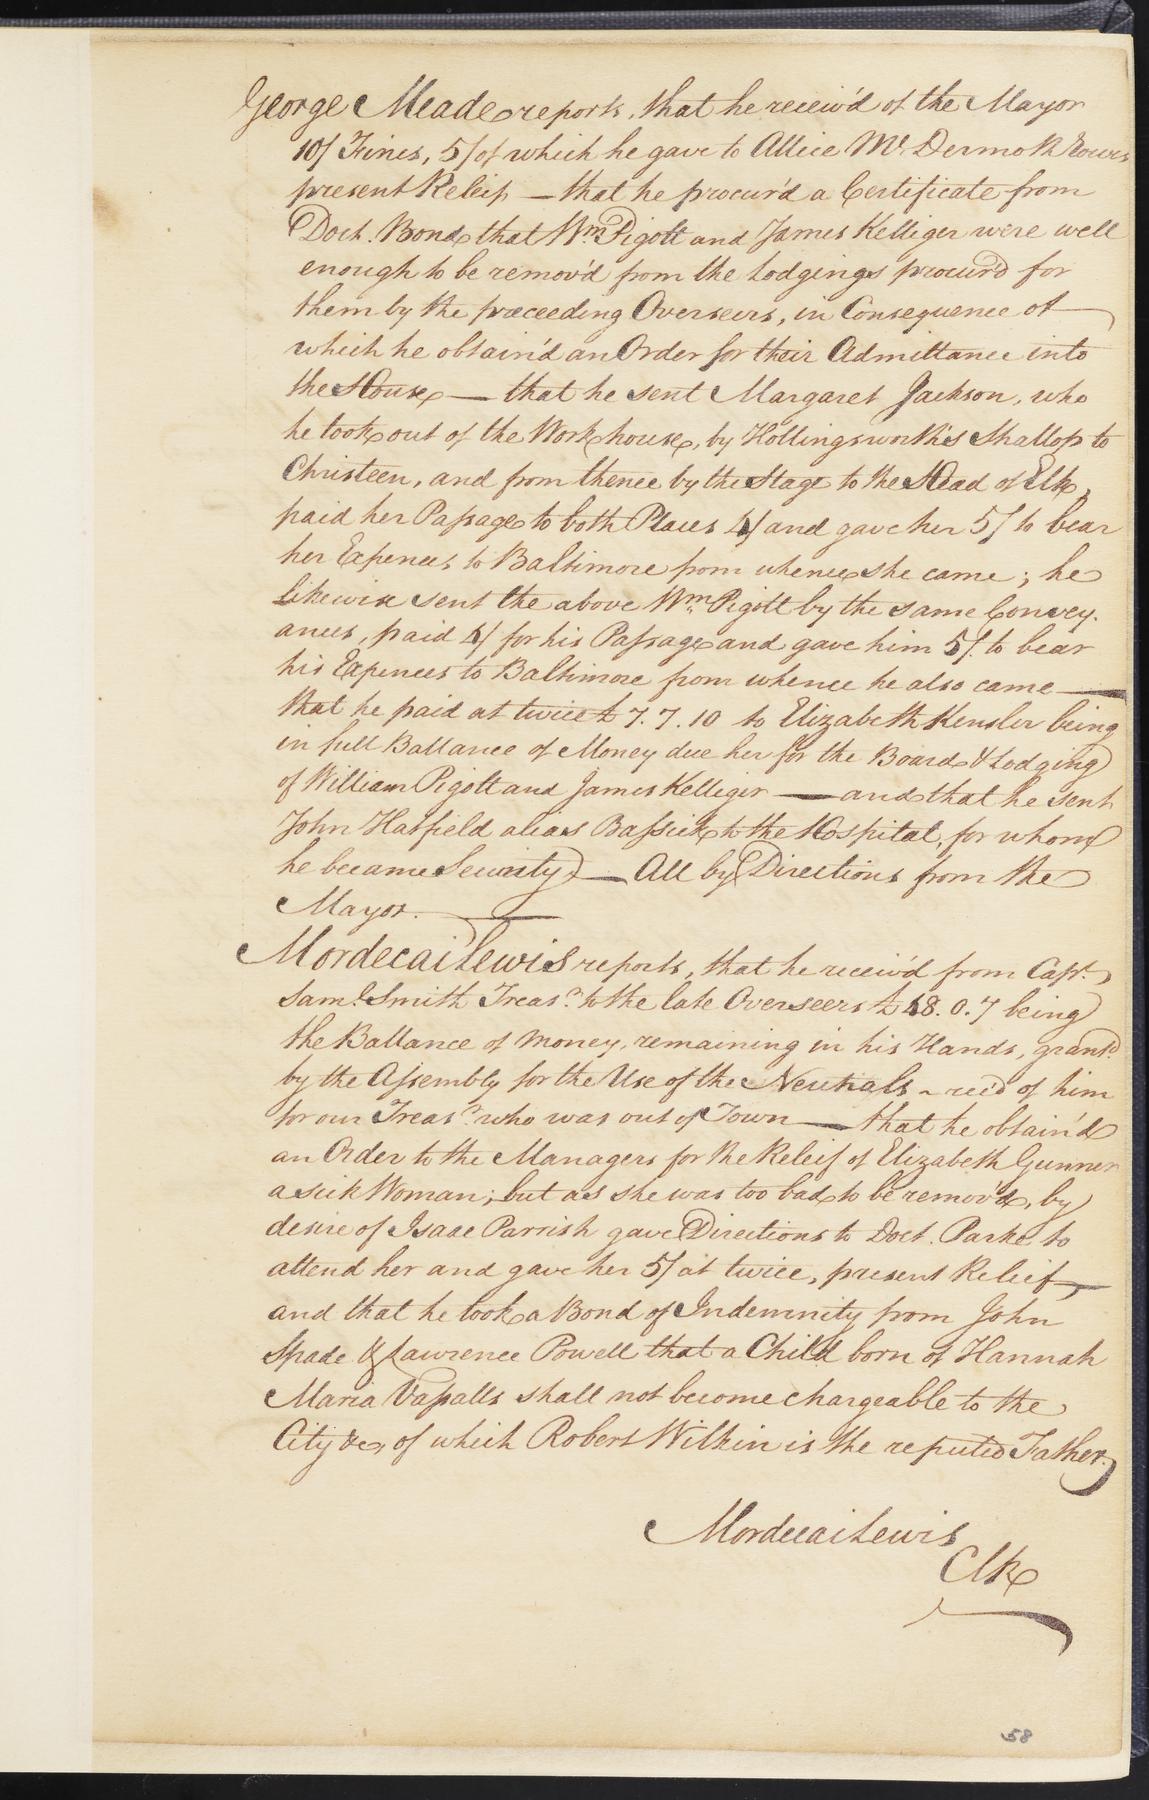 George Meade reports, that he receiv'd of the Mayor
10/ Fines, 5/ of which he gave to Allice McDermoth
present Releif — that he procur'd a Certificate from
Doct. Bond that Wm. Pigott and James Kelliger were well
enough to be remov'd from the Lodgings procur'd for
them by the preceeding Overseers, in Consequence of
which he obtain'd an Order for their Admittance into
the House — that he sent Margaret Jackson, who
he took out of the Workhouse, by Hollingsworth's Shallop to
Christeen, and from thence by the Stage to the Head of Elk,
paid her Passage to both Places 4/ and gave her 5/ to bear
her Expences to Baltimore from whence she came; he
likewise sent the above Wm. Pigott by the same Convey-
ances, paid 4/ for his Passage and gave him 5/. to bear
his Expences to Baltimore from whence he also came —
that he paid at twice £ 7. 7. 10 to Elizabeth Kensler being
in full Ballance of Money due her for the Board & Lodging
of William Pigott and James Kelliger — and that he sent
John Hatfield alias Bassick to the Hospital, for whom
he became Security — All by Directions from the
Mayor. —
Mordecai Lewis reports, that he receiv'd from Capt.
Saml. Smith Treasr. to the late Overseers £ 48. 0. 7 being
the Ballance of Money, remaining in his Hands, grantd.
by the Assembly for the Use of the Neutrals ~ rec'd of him
for our Treasr. who was out of Town — that he obtain'd
an Order to the Managers for the Releif of Elizabeth Gunner
a sick Woman; but as she was too bad to be remov'd, by
desire of Isaac Parrish gave Directions to Doct. Parke to
attend her and gave her 5/ at twice, present Relief, —
and that he took a Bond of Indemnity from John
Spade & Lawrence Powell that a Child born of Hannah
Maria Vassalls shall not become chargeable to the
City &c, of which Robert Wilkin is the reputed Father.
Mordecai Lewis
Clk
58